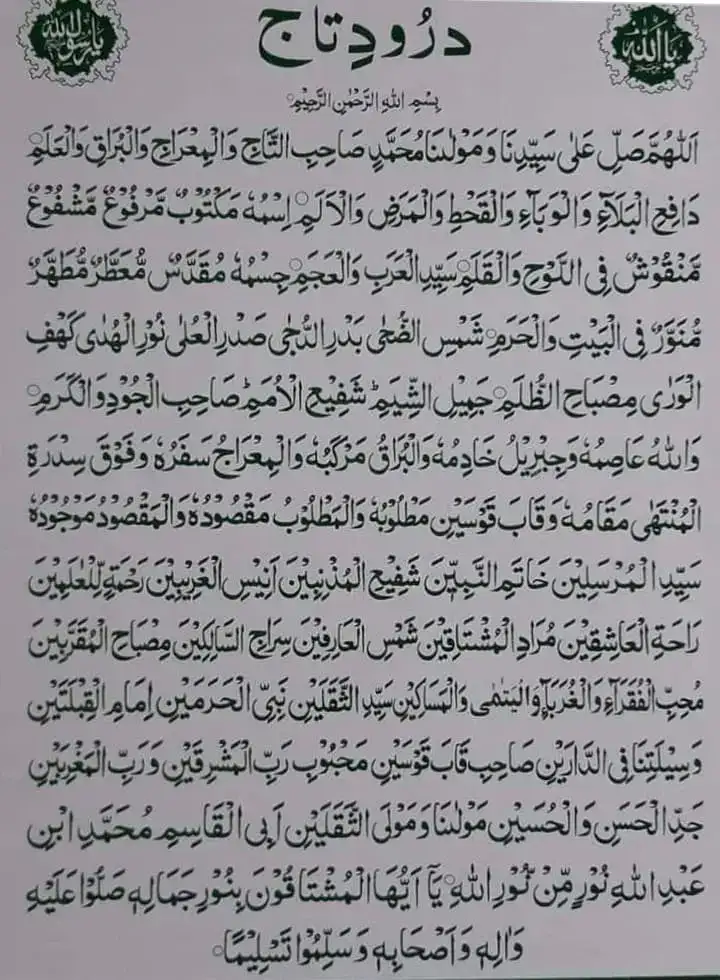 یا رسول اللہ
درُودِ تاج
یا اللہ
بِسْمِ اللهِ الرَّحْمٰنِ الرَّحِيْمِ
اَللّٰهُمَّ صَلِّ عَلٰى سَيِّدِنَا وَمَوْلٰنَا مُحَمَّدٍ صَاحِبِ التَّاجِ وَالْمِعْرَاجِ وَالْبُرَاقِ وَالْعَلَمِ
دَافِعِ الْبَلَآءِ وَالْوَبَآءِ وَالْقَحْطِ وَالْمَرَضِ وَالْاَلَمِ اِسْمُهٗ مَكْتُوْبٌ مَّرْفُوْعٌ مَّشْفُوْعٌ
مَّنْقُوْشٌ فِى اللَّوْحِ وَالْقَلَمِ سَيِّدِ الْعَرَبِ وَالْعَجَمِ جِسْمُهٗ مُقَدَّسٌ مُّعَطَّرٌ مُّطَهَّرٌ
مُّنَوَّرٌ فِى الْبَيْتِ وَالْحَرَمِ شَمْسِ الضُّحٰى بَدْرِ الدُّجٰى صَدْرِ الْعُلٰى نُوْرِ الْهُدٰى كَهْفِ
الْوَرٰى مِصْبَاحِ الظُّلَمِ جَمِيْلِ الشِّيَمِ شَفِيْعِ الْاُمَمِ صَاحِبِ الْجُوْدِ وَالْكَرَمِ
وَاللهُ عَاصِمُهٗ وَجِبْرِيْلُ خَادِمُهٗ وَالْبُرَاقُ مَرْكَبُهٗ وَالْمِعْرَاجُ سَفَرُهٗ وَفَوْقَ سِدْرَةِ
الْمُنْتَهٰى مَقَامُهٗ وَقَابَ قَوْسَيْنِ مَطْلُوْبُهٗ وَالْمَطْلُوْبُ مَقْصُوْدُهٗ وَالْمَقْصُوْدُ مَوْجُوْدُهٗ
سَيِّدِ الْمُرْسَلِيْنَ خَاتَمِ النَّبِيّٖنَ شَفِيْعِ الْمُذْنِبِيْنَ اَنِيْسِ الْغَرِيْبِيْنَ رَحْمَةٍ لِّلْعٰلَمِيْنَ
رَاحَةِ الْعَاشِقِيْنَ مُرَادِ الْمُشْتَاقِيْنَ شَمْسِ الْعَارِفِيْنَ سِرَاجِ السَّالِكِيْنَ مِصْبَاحِ الْمُقَرَّبِيْنَ
مُحِبِّ الْفُقَرَآءِ وَالْغُرَبَآءِ وَالْيَتٰمٰى وَالْمَسَاكِيْنِ سَيِّدِ الثَّقَلَيْنِ نَبِيِّ الْحَرَمَيْنِ اِمَامِ الْقِبْلَتَيْنِ
وَسِيْلَتِنَا فِى الدَّارَيْنِ صَاحِبِ قَابَ قَوْسَيْنِ مَحْبُوْبِ رَبِّ الْمَشْرِقَيْنِ وَرَبِّ الْمَغْرِبَيْنِ
جَدِّ الْحَسَنِ وَالْحُسَيْنِ مَوْلٰنَا وَمَوْلَى الثَّقَلَيْنِ اَبِى الْقَاسِمِ مُحَمَّدِ ابْنِ
عَبْدِ اللهِ نُوْرٍ مِّنْ نُّوْرِ اللهِ يَآ اَيُّهَا الْمُشْتَاقُوْنَ بِنُوْرِ جَمَالِهٖ صَلُّوْا عَلَيْهِ
وَاٰلِهٖ وَاَصْحَابِهٖ وَسَلِّمُوْا تَسْلِيْمًا